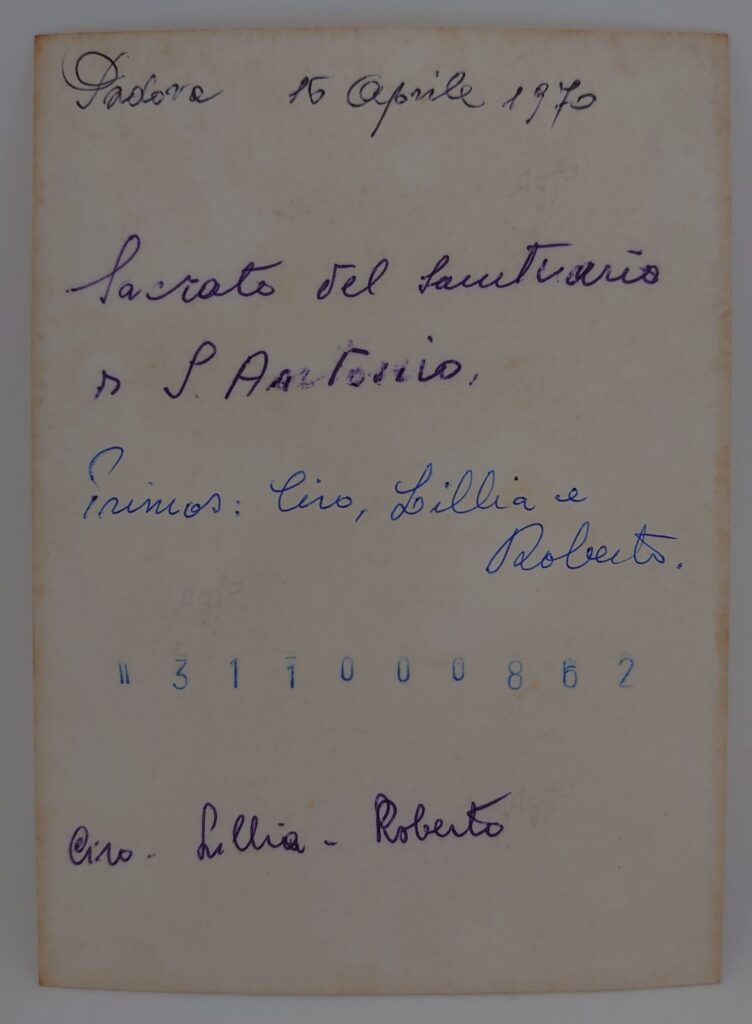 Padova 15 Aprile 1970
Sacrato del Santuario
di S. Antonio.
Primos: Ciro, Lillia e
Roberto.
311000862
Ciro - Lillia - Roberto